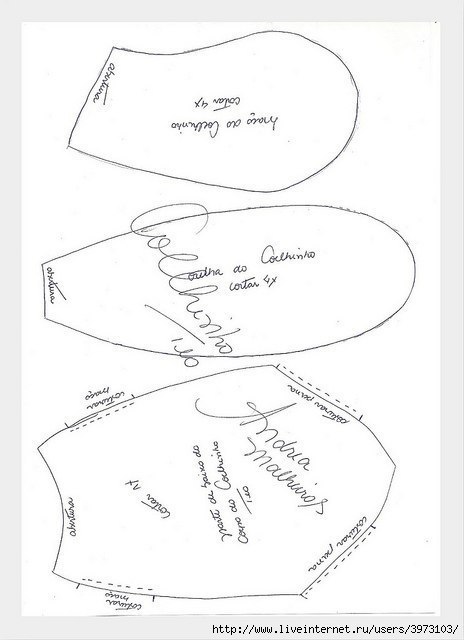 abertura
braço do Coelhinho
cortar 4x
orelha do Coelhinho
cortar 4x
abertura
costurar
braço
costurar perna
Parte de baixo do
Corpo do Coelhinho
cortar 1x
abertura
costurar perna
costurar
braço
http://www.liveinternet.ru/users/3973103/